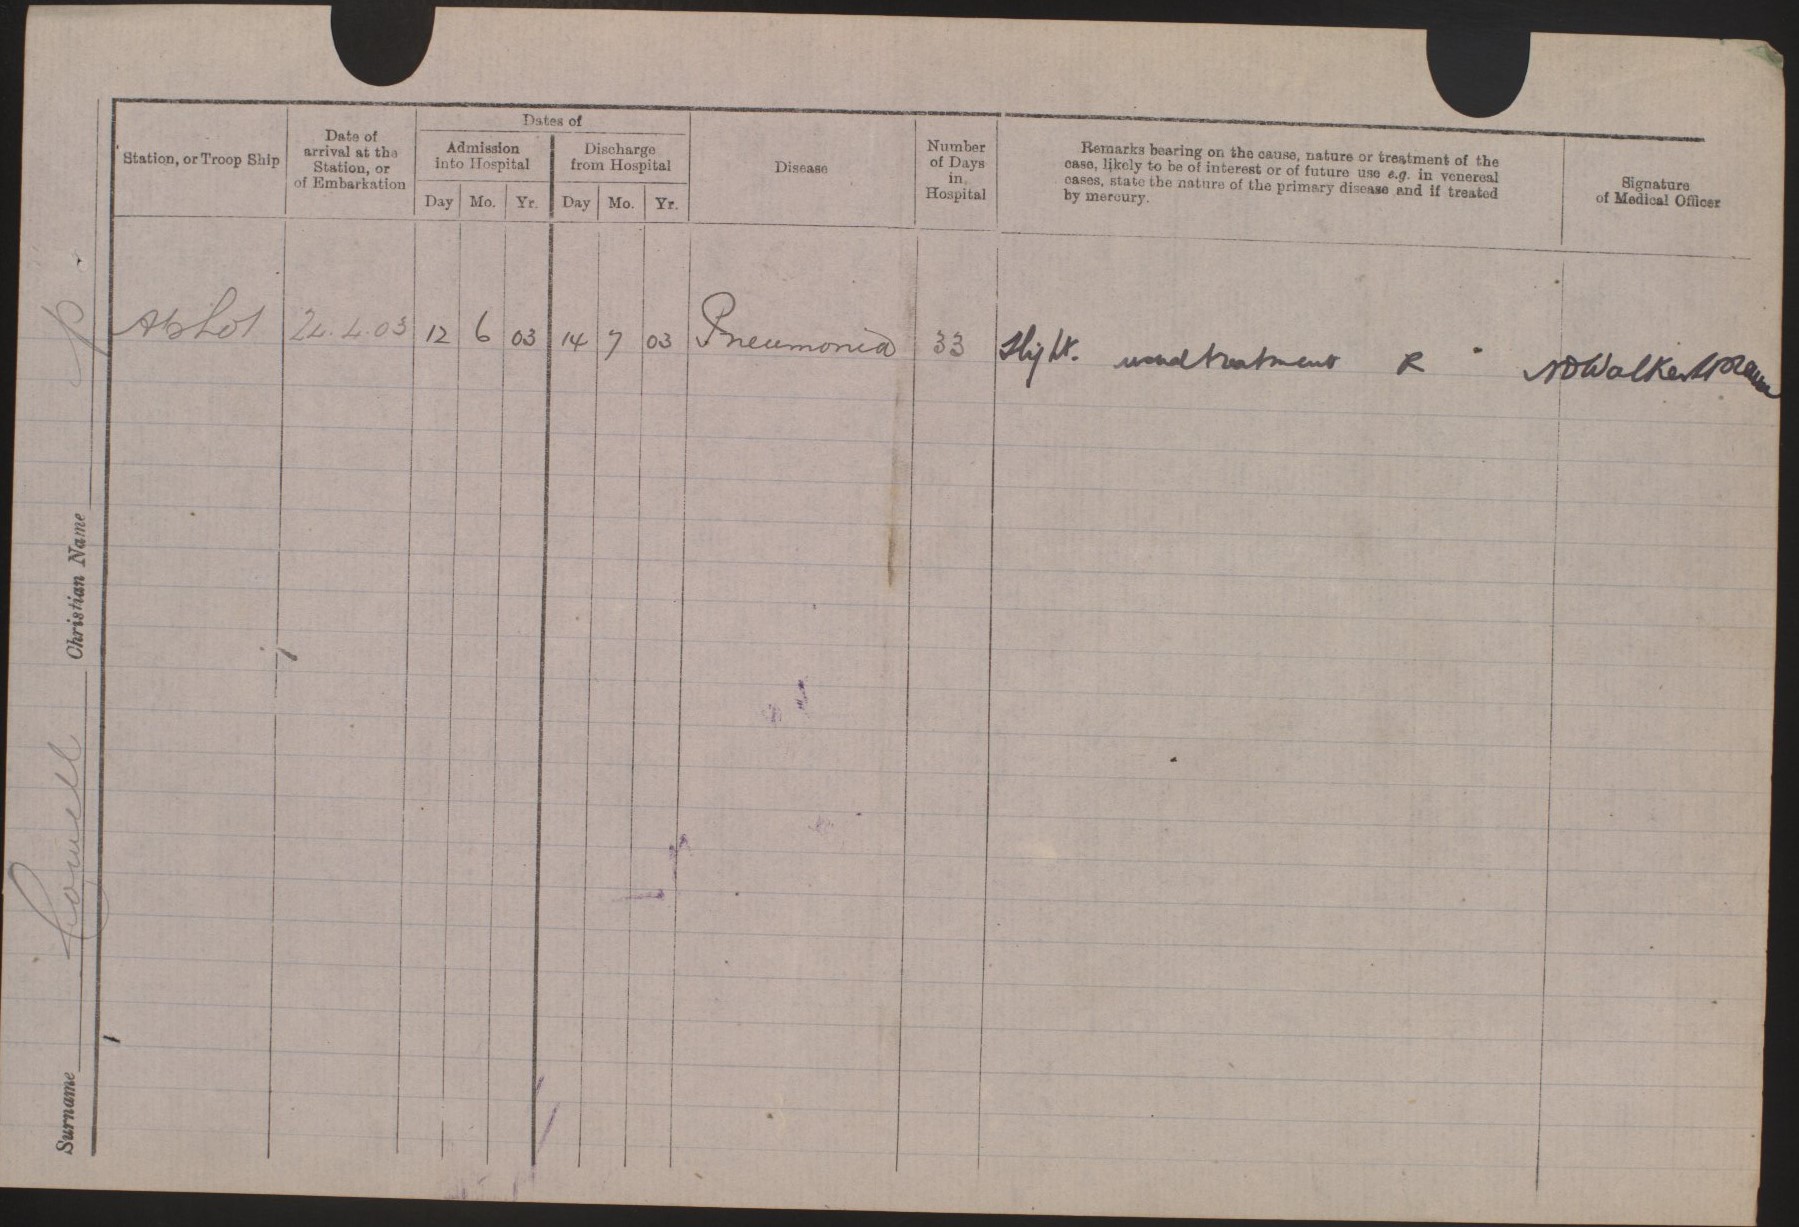 Station, or Troop Ship
Date of
arrival at the
Station, or
of Embarkation
Dates of
Admission
into Hospital
Discharge
from Hospital
Day Mo. Yr. Day Mo. Yr.
Disease
Number
of Days
in
Hospital
Remarks bearing on the cause, nature or treatment of the
case, likely to be of interest or of future use e.g. in venereal
cases, state the nature of the primary disease and if treated
by mercury.
Signature
of Medical Officer
24.4.03 12 6 03 14 7 03 Pneumonia 33 Slight. usual treatment R
Surname Christian Name P.